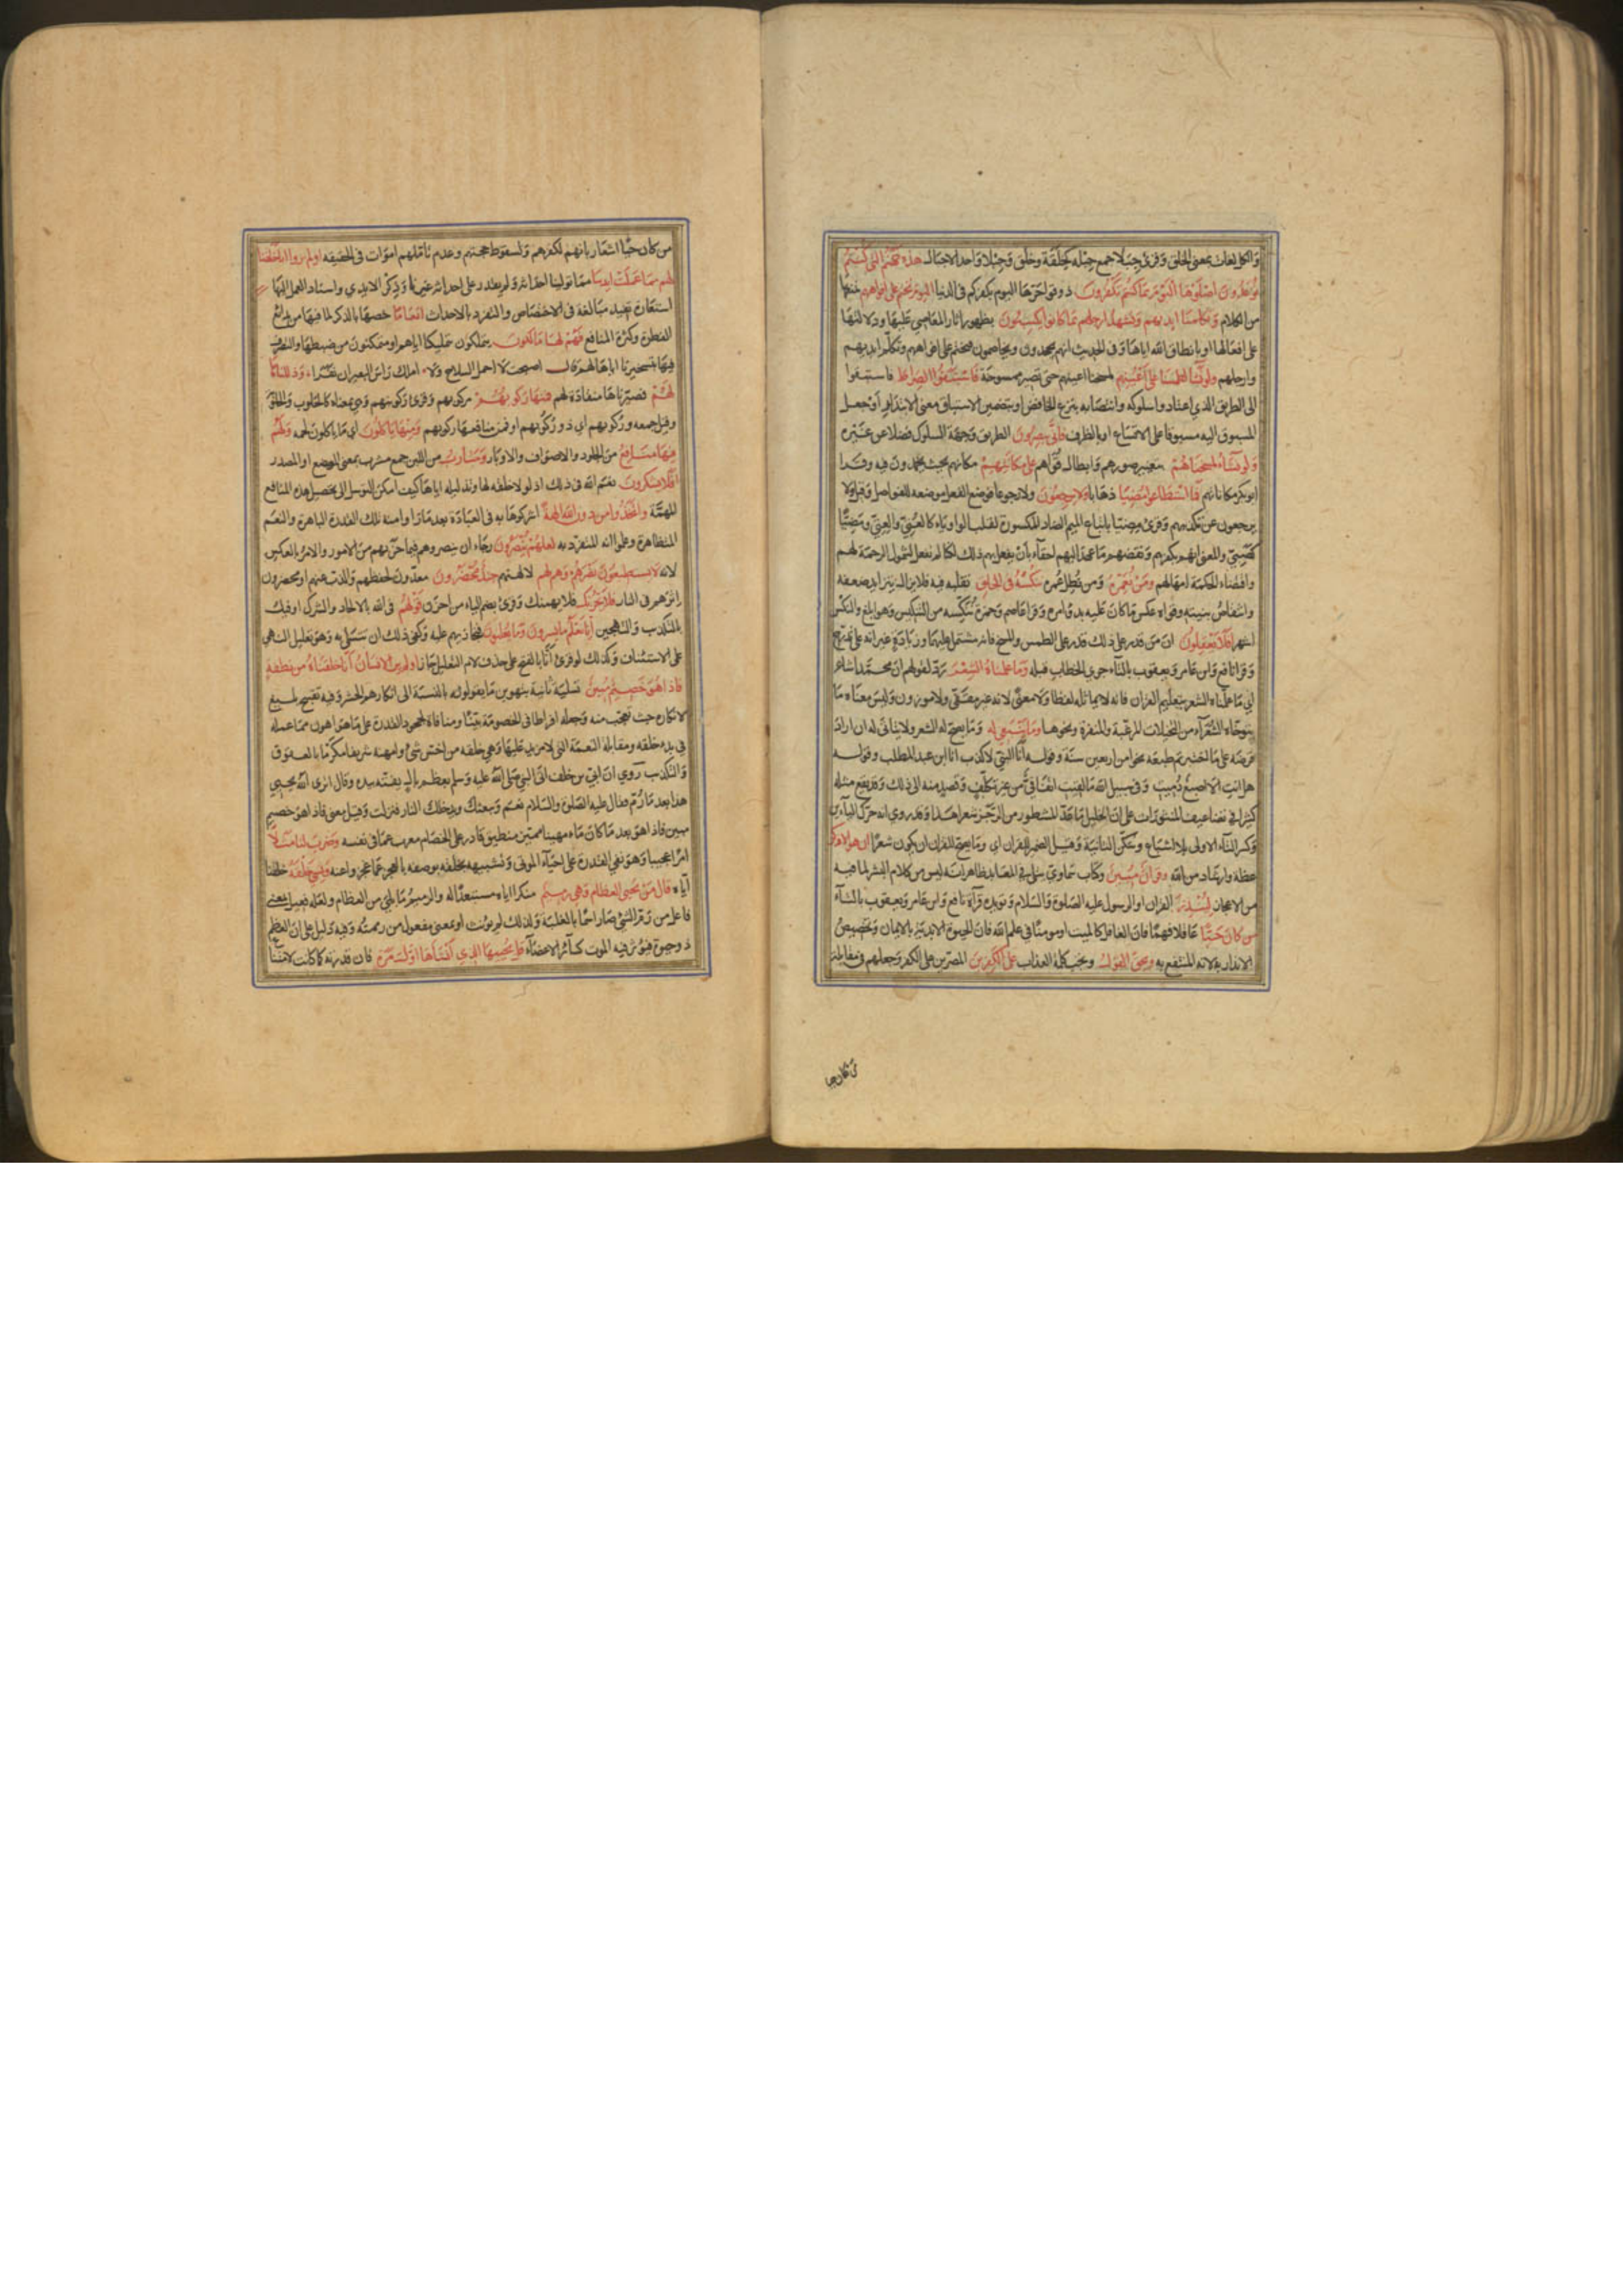 والكل لغات بمعنى الخلق وقرئ جبلا جمع جبلة كخلقة وخلق وجيلا واحد الاجيال هذه جهنم التي كنتم
توعدون اصلوها اليوم بما كنتم تكفرون ذوقوا حرها اليوم بكفركم في الدنيا اليوم نختم على افواههم نمنعها
من الكلام وتكلمنا ايديهم وتشهد ارجلهم بما كانوا يكسبون بظهور اثار المعاصي عليها ودلالتها
على افعالها او بانطاق الله اياها وفي الحديث انهم يجحدون ويخاصمون فيختم على افواههم وتكلم ايديهم
وارجلهم ولو نشاء لطمسنا على اعينهم لمسحنا اعينهم حتى تصير ممسوحة فاستبقوا الصراط فاستبقوا
الى الطريق الذي اعتادوا سلوكه وانتصابه بنزع الخافض او بتضمين الاستباق معنى الابتدار او جعل
المسبوق اليه مسبوقا على الاتساع او بالظرف فانى يبصرون الطريق وجهة السلوك فضلا عن غيره
ولو نشاء لمسخناهم بتغيير صورهم وابطال قواهم على مكانتهم مكانهم بحيث يجمدون فيه وقرا
ابو بكر مكاناتهم فما استطاعوا مضيا ذهابا ولا يرجعون ولا رجوعا فوضع الفعل موضعه للفواصل وقيل ولا
يرجعون عن تكذيبهم وقرئ مضيا باتباع الميم الضاد المكسورة لقلب الواو ياء كالعتي والعتي ومضيا
كصبي والمعنى انهم بكفرهم ونقضهم ما عهد اليهم احقاء بان يفعل بهم ذلك لكنا لم نفعل لشمول الرحمة لهم
واقتضاء الحكمة امهالهم ومن نعمره ومن نطل عمره ننكسه في الخلق نقلبه فيه فلا يزال يتزايد ضعفه
وانتقاض بنيته وقواه عكس ما كان عليه بدو امره وقرا عاصم وحمزة ننكسه من التنكيس وهو ابلغ والنكس
اشهر افلا يعقلون ان من قدر على ذلك قدر على الطمس والمسخ فانه مشتمل عليهما وزيادة غير انه على تدرج
وقرا نافع وابن عامر ويعقوب بالتاء لجري الخطاب قبله وما علمناه الشعر رد لقولهم ان محمدا شاعر
اي ما علمناه الشعر بتعليم القران فانه لا يماثله لفظا ولا معنى لانه غير مقفى ولا موزون وليس معناه ما
يتوخاه الشعراء من التخيلات المرغبة والمنفرة ونحوها وما ينبغي له وما يصح له الشعر ولا يتاتى له ان اراد
قرضه على ما اختبرتم طبعه نحوا من اربعين سنة وقوله انا النبي لا كذب انا ابن عبد المطلب وقوله
هل انت الا اصبع دميت وفي سبيل الله ما لقيت اتفاقي من غير تكلف وقصد منه الى ذلك وقد يقع مثله
كثيرا في تضاعيف المنثورات على ان الخليل ما عد المشطور من الرجز شعرا هذا وقد روي انه حرك الباءين
وكسر التاء الاولى بلا اشباع وسكن الثانية وقيل الضمير للقران اي وما يصح للقران ان يكون شعرا ان هو الا ذكر
عظة وارشاد من الله وقران مبين وكتاب سماوي يتلى في المعابد ظاهر انه ليس من كلام البشر لما فيه
من الاعجاز لينذر القران او الرسول عليه الصلوة والسلام ويؤيده قراءة نافع وابن عامر ويعقوب بالتاء
من كان حيا عاقلا فهما فان الغافل كالميت او مومنا في علم الله فان الحيوة الابدية بالايمان وتخصيص
الانذار به لانه المنتفع به ويحق القول وتجب كلمة العذاب على الكفرين المصرين على الكفر وجعلهم في مقابلة
من كان حيا اشعار بانهم لكفرهم وسقوط حجتهم وعدم تاملهم اموات في الحقيقه اولم يروا انا خلقنا
لهم مما عملت ايدينا مما تولينا احداثه ولم يقدر على احداثه غيرنا وذكر الايدي واسناد العمل اليها
استعارة تفيد مبالغة في الاختصاص والتفرد بالاحداث انعاما خصها بالذكر لما فيها من بدائع
الفطرة وكثرة المنافع فهم لها مالكون يتملكون تمليكنا اياهم او متمكنون من ضبطها والتصرف
فيها بتسخيرنا اياها لهم قال اصبحت لا احمل السلاح ولا املك راس البعير ان نفرا وذللناها
لهم فصيرناها منقادة لهم فمنها ركوبهم مركوبهم وقرئ ركوبتهم وهي بمعناه كالحلوب والحلوبة
وقيل جمعه وركوبهم اي ذو ركوبهم او فمن منافعها ركوبهم ومنها ياكلون اي ما ياكلون لحمه ولهم
فيها منافع من الجلود والاصواف والاوبار ومشارب من اللبن جمع مشرب بمعنى الموضع او المصدر
افلا يشكرون نعم الله في ذلك اذ لولا خلقه لها وتذليله اياها كيف امكن التوسل الى تحصيل هذه المنافع
المهمة واتخذوا من دون الله الهة اشركوها به في العبادة بعد ما راوا منه تلك القدرة الباهرة والنعم
المتظاهرة وعلموا انه المتفرد به لعلهم ينصرون رجاء ان ينصروهم فيما حزبهم من الامور والامر بالعكس
لانه لا يستطيعون نصرهم وهم لهم لالهتهم جند محضرون معدون لحفظهم والذب عنهم او محضرون
اثرهم في النار فلا يحزنك فلا يهمنك وقرئ بضم الياء من احزن قولهم في الله بالالحاد والشرك او فيك
بالتكذيب والتهجين انا نعلم ما يسرون وما يعلنون فنجازيهم عليه وكفى ذلك ان تتسلى به وهو تعليل النهي
على الاستئناف وكذلك لو قرئ انا بالفتح على حذف لام التعليل جاز اولم ير الانسان انا خلقناه من نطفة
فاذا هو خصيم مبين تسلية ثانية بتهوين ما يقولونه بالنسبة الى انكارهم الحشر وفيه تقبيح بليغ
لانكاره حيث تعجب منه وجعله افراطا في الخصومة بينا ومنافاة لجحود القدرة على ما هو اهون مما عمله
في بدء خلقه ومقابلة النعمة التي لا مزيد عليها وهي خلقه من اخس شئ وامهنه شريفا مكرما بالعقوق
والتكذيب روي ان ابي بن خلف اتى النبي صلى الله عليه وسلم بعظم بال يفتته بيده وقال اترى الله يحيي
هذا بعد ما رم فقال عليه الصلوة والسلام نعم ويبعثك ويدخلك النار فنزلت وقيل معنى فاذا هو خصيم
مبين فاذا هو بعد ما كان ماء مهينا مميز منطيق قادر على الخصام معرب عما في نفسه وضرب لنا مثلا
امرا عجيبا وهو نفي القدرة على احياء الموتى وتشبيهه بخلقه بوصفه بالعجز عما عجزوا عنه ونسي خلقه خلقنا
اياه قال من يحيي العظام وهي رميم منكرا اياه مستبعدا له والرميم ما بلي من العظام ولعله فعيل بمعنى
فاعل من رم الشئ صار اسما بالغلبة ولذلك لم يؤنث او بمعنى مفعول من رممته وفيه دليل على ان العظم
ذو حيوة فيؤثر فيه الموت كسائر الاعضاء قل يحييها الذي انشاها اول مرة فان قدرته كما كانت لامتناع